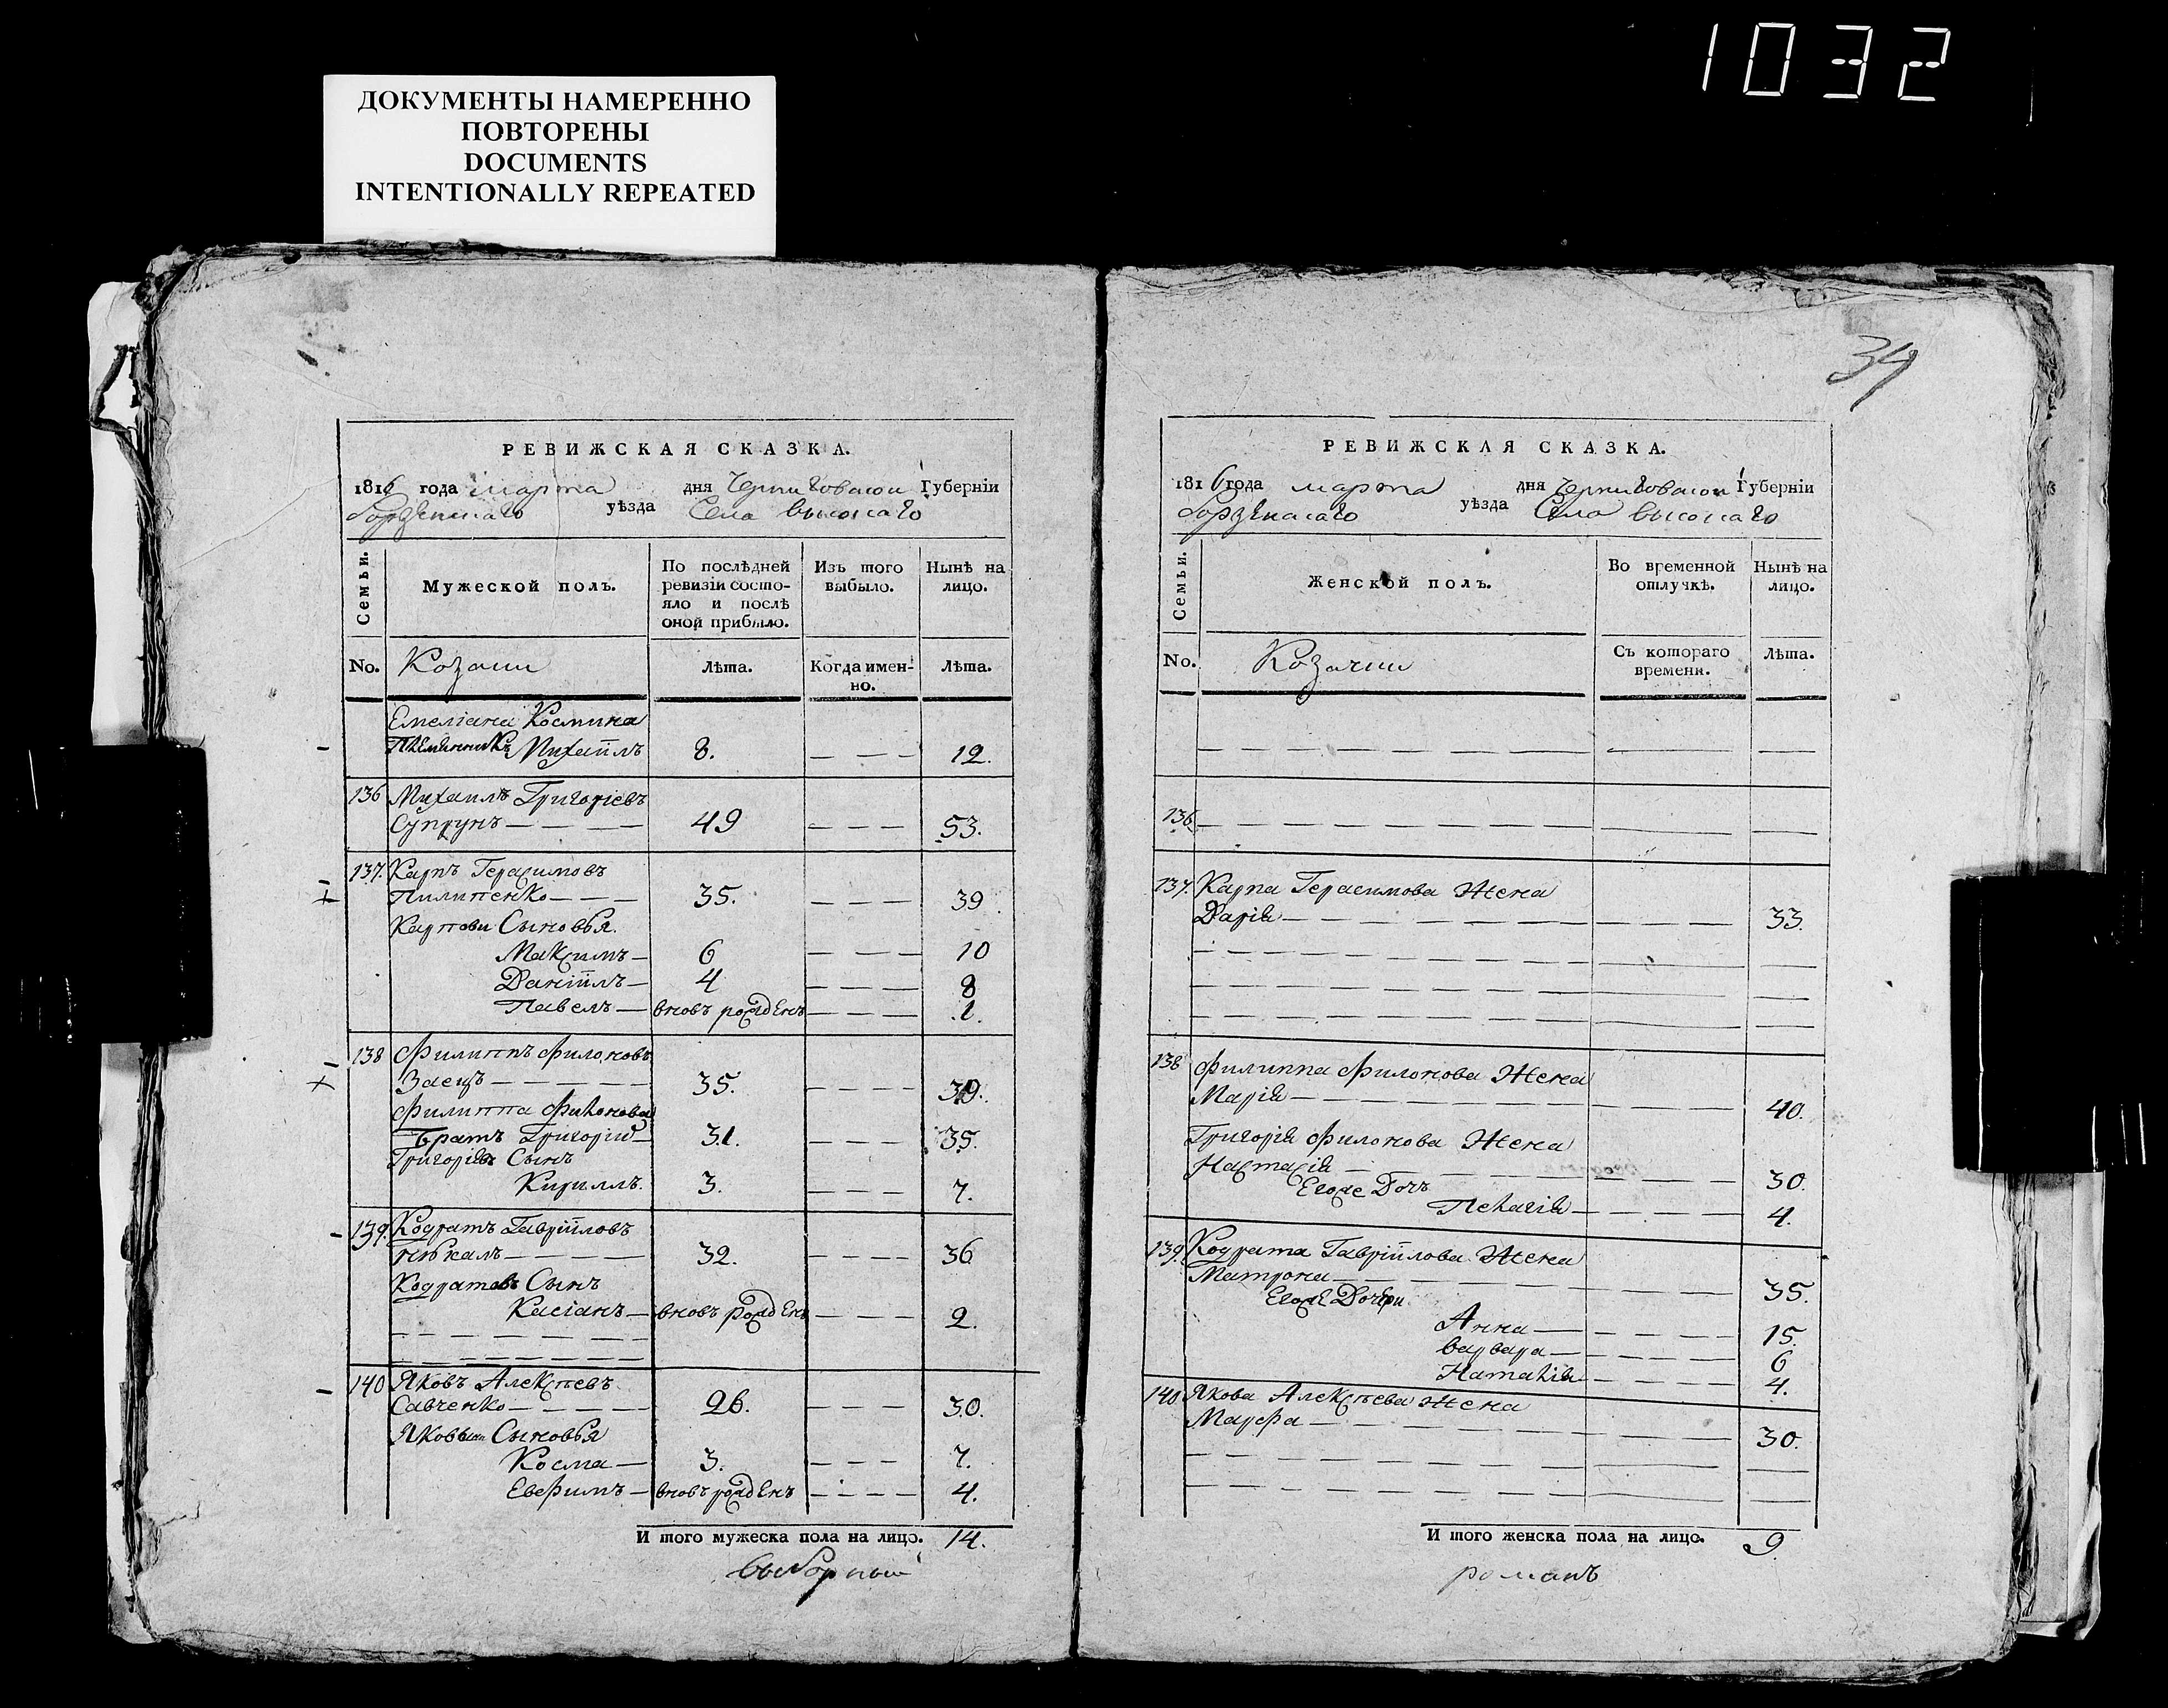 1032
ДОКУМЕНТЫ НАМЕРЕННО
ПОВТОРЕНЫ
DOCUMENTS
INTENTIONALLY REPEATED
РЕВИЖСКАЯ СКАЗКА.
1816 года марта дня Черниговской Губерніи
Борзенскаго уѣзда Села высокаго
Семьи. Мужеской полъ. По послѣдней ревизіи состояло и послѣ оной прибыло. Изъ того выбыло. Нынѣ на лицо.
No. Козаки Лѣта. Когда именно. Лѣта.
Емеліана Космина
Племянникъ Михайлъ 8. — — — 12.
136 Михаилъ Григоріевъ
Супрунъ — — — 49 — — — 53.
137. Карпъ Герасимовъ
Пилипенко — — — 35. — — — 39
Карпови Сыновья.
Максимъ — 6 — — — 10
Даніилъ — 4 — — — 8
Павелъ — вновь рожденъ — — — 1.
138 Филиппъ Филоновъ
Заецъ — — — — 35. — — — 39.
Филиппа Филонова
Братъ Григорій — 31. — — — 35.
Григоріевъ Сынъ
Кириллъ. 3. — — — 7.
139. Кодратъ Гавріиловъ
— — — — 32. — — — 36
Кодратовъ Сынъ
Касіанъ — вновь рожденъ — — — 2.
140 Яковъ Алексѣевъ
Савченко — — — — 26. — — — 30.
Яковыи Сыновья
Косма — 3. — — — 7.
Евфимъ — вновь рожденъ — — — 4.
И того мужеска пола на лицо. 14.
выборный
34
РЕВИЖСКАЯ СКАЗКА.
1816 года марта дня Черниговской Губерніи
Борзенскаго уѣзда Села высокаго
Семьи. Женской полъ. Во временной отлучкѣ. Нынѣ на лицо.
No. Козачки Съ котораго времени. Лѣта.
136
137. Карпа Герасимова Жена
Дарія — — — 33.
138 Филиппа Филонова Жена
Марія — — — 40.
Григорія Филонова Жена
Настасія — — — 30.
Егоже Дочь
Пелагія — — — 4.
139. Кодрата Гавріилова Жена
Матрона — — — 35.
Егоже Дочери
Анна — — — 15.
варвара — — — 6
Наталія — — — 4.
140 Якова Алексѣева Жена
Марфа — — — 30.
И того женска пола на лицо. 9.
романъ